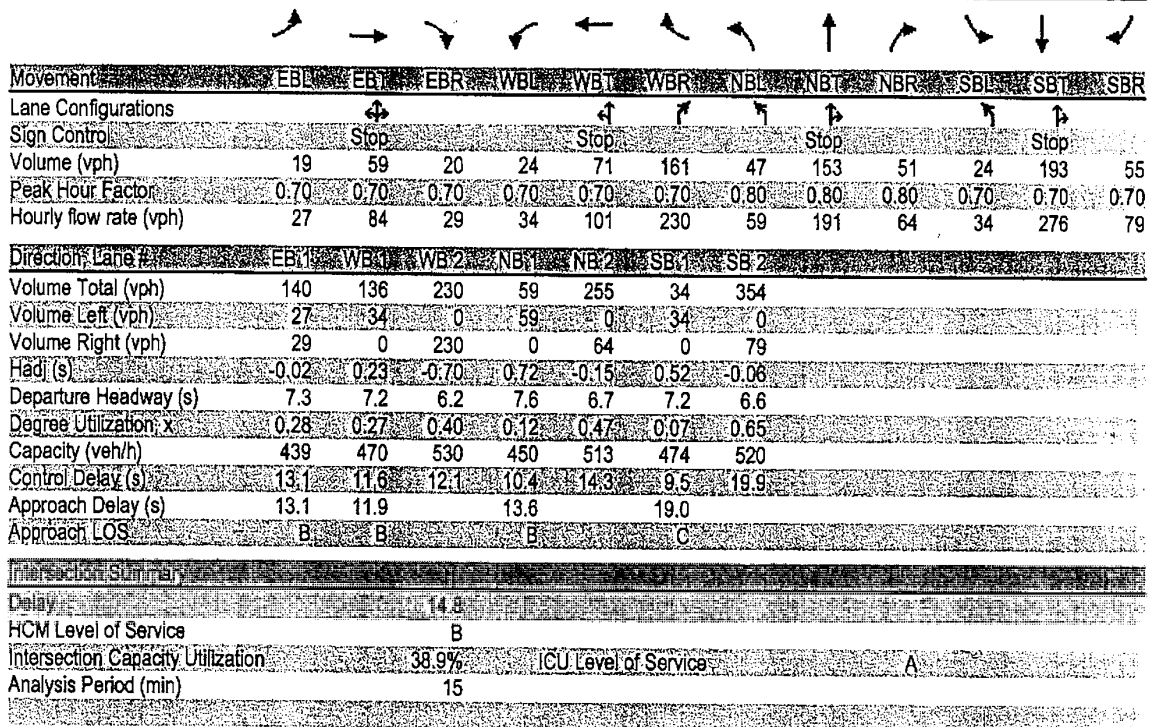 Movement EBL EBT EBR WBL WBT WBR NBL NBT NBR SBL SBT SBR
Lane Configurations
Sign Control Stop Stop Stop Stop
Volume (vph) 19 59 20 24 71 161 47 153 51 24 193 55
Peak Hour Factor 0.70 0.70 0.70 0.70 0.70 0.70 0.80 0.80 0.80 0.70 0.70 0.70
Hourly flow rate (vph) 27 84 29 34 101 230 59 191 64 34 276 79
Direction, Lane # EB 1 WB 1 WB 2 NB 1 NB 2 SB 1 SB 2
Volume Total (vph) 140 136 230 59 255 34 354
Volume Left (vph) 27 34 0 59 0 34 0
Volume Right (vph) 29 0 230 0 64 0 79
Hadj (s) -0.02 0.23 -0.70 0.72 -0.15 0.52 -0.06
Departure Headway (s) 7.3 7.2 6.2 7.6 6.7 7.2 6.6
Degree Utilization, x 0.28 0.27 0.40 0.12 0.47 0.07 0.65
Capacity (veh/h) 439 470 530 450 513 474 520
Control Delay (s) 13.1 11.6 12.1 10.4 14.3 9.5 19.9
Approach Delay (s) 13.1 11.9 13.6 19.0
Approach LOS B B B C
Intersection Summary
Delay 14.8
HCM Level of Service B
Intersection Capacity Utilization 38.9% ICU Level of Service A
Analysis Period (min) 15